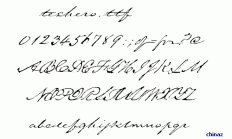 techero.ttf
0123456789:;@=?
ABCDEFGHIJKLM
NOPQRSTUVWXYZ
abcdefghijklmnopqr
chinaz